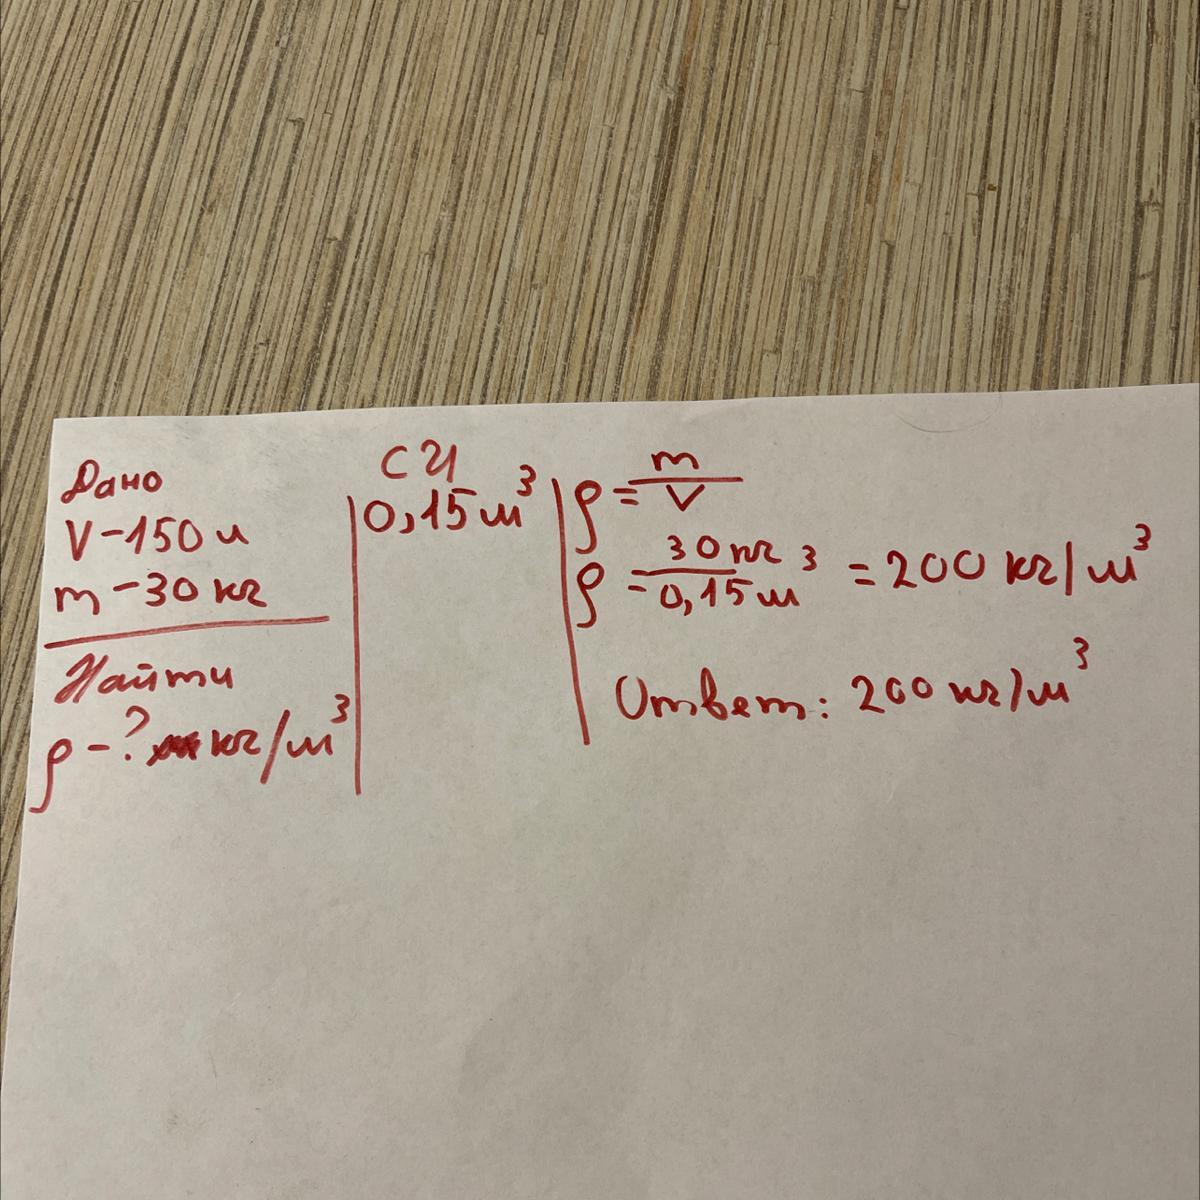 Дано
V-150 л
m-30 кг
Найти
ρ-? кг/м³
СИ
0,15м³
ρ = m/V
ρ - 30кг/0,15м³ = 200 кг/м³
Ответ: 200 кг/м³